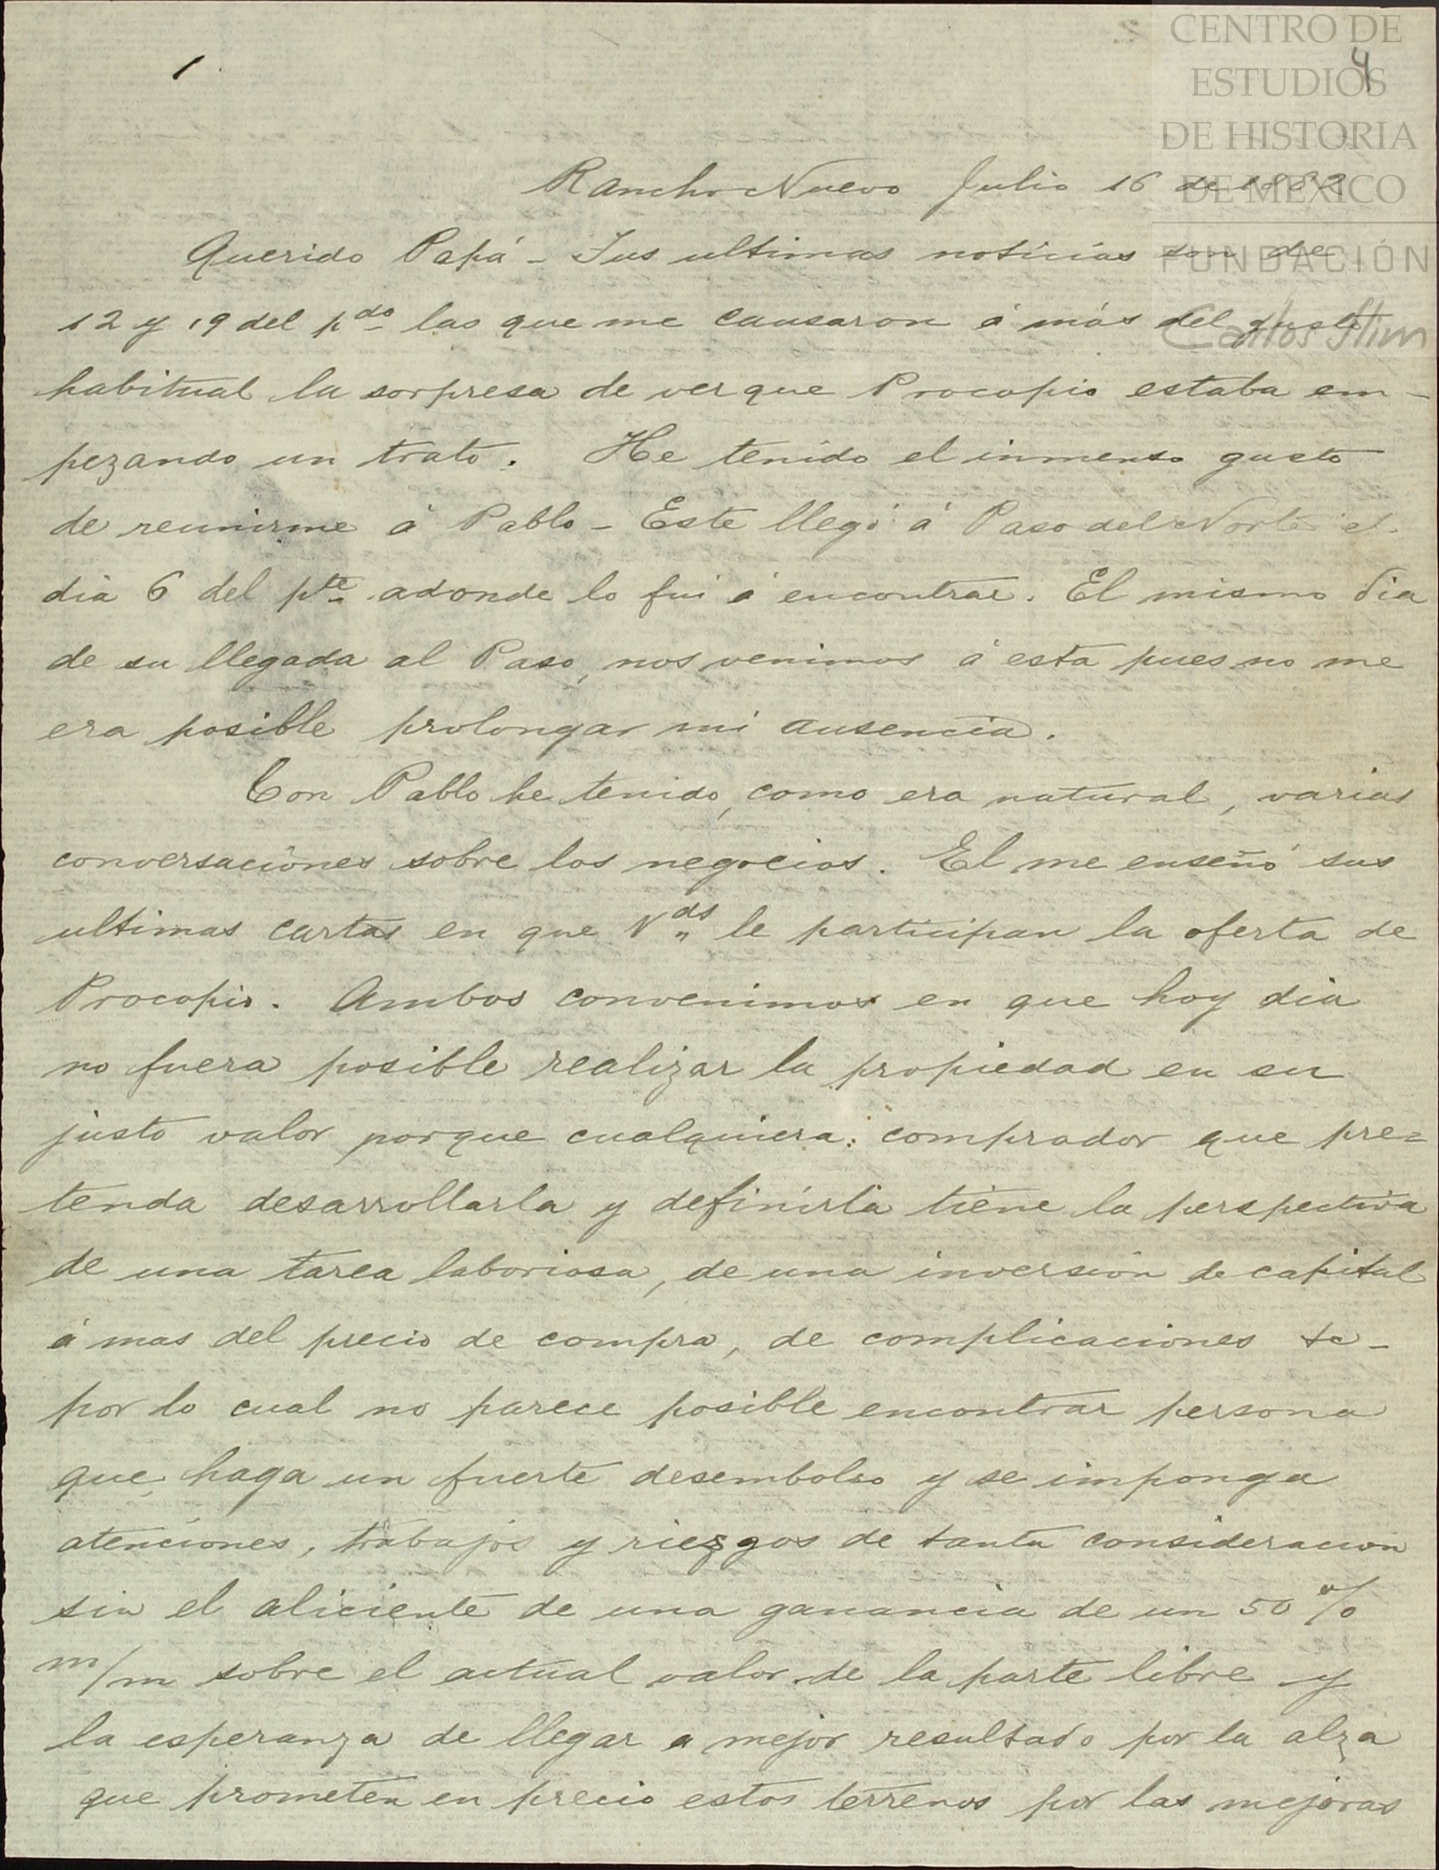 1
4
CENTRO DE
ESTUDIOS
DE HISTORIA
DE MÉXICO
FUNDACIÓN
Carlos Slim
Rancho Nuevo Julio 16 de 1882
Querido Papá - Tus ultimas noticias son de
12 y 19 del pdo las que me causaron á más del gusto
habitual la sorpresa de ver que Procopio estaba em-
pezando un trato. He tenido el inmenso gusto
de reunirme á Pablo - Este llegó á Paso del Norte el
dia 6 del pte adonde lo fui á encontrar. El mismo dia
de su llegada al Paso, nos venimos á esta pues no me
era posible prolongar mi ausencia.
Con Pablo he tenido, como era natural, varias
conversaciones sobre los negocios. El me enseñó sus
ultimas cartas en que Vds le participan la oferta de
Procopio. Ambos convenimos en que hoy dia
no fuera posible realizar la propiedad en su
justo valor porque cualquiera: comprador que pre=
tenda desarrollarla y definirla tiene la perspectiva
de una tarea laboriosa, de una inversion de capital
á mas del precio de compra, de complicaciones &c -
por lo cual no parece posible encontrar persona
que haga un fuerte desembolso y se imponga
atenciones, trabajos y riezgos de tanta consideracion
sin el aliciente de una ganancia de un 50%
m/m sobre el actual valor de la parte libre y
la esperanza de llegar a mejor resultado por la alza
que prometen en precio estos terrenos por las mejoras